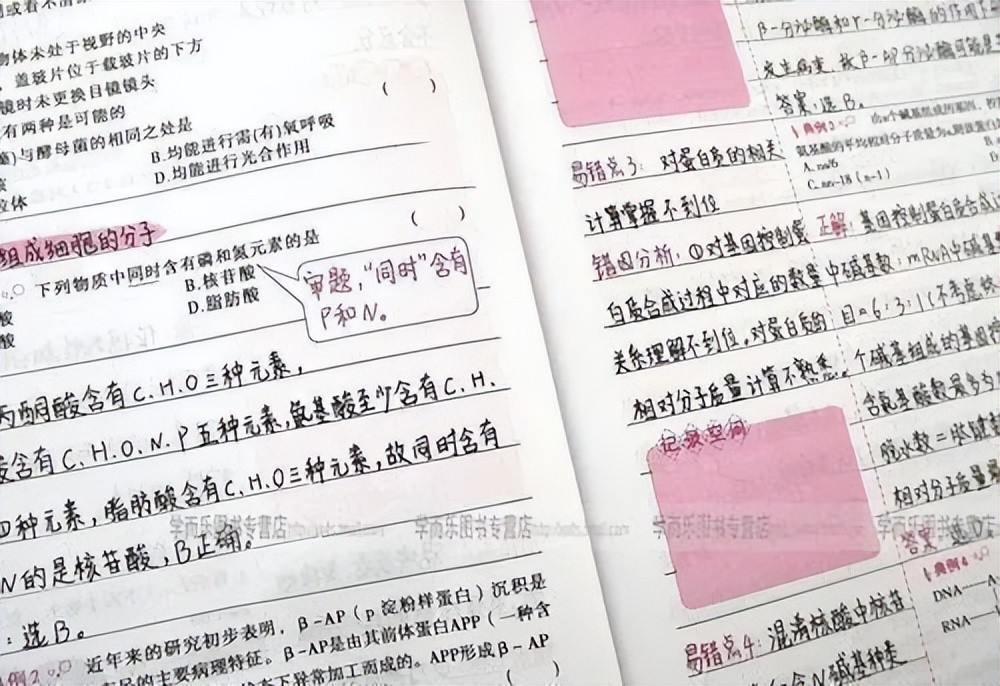 物体未处于视野的中央
盖玻片位于载玻片的下方
镜时未更换目镜镜头
有两种是可能的
( )
与酵母菌的相同之处是
B.均能进行需(有)氧呼吸
D.均能进行光合作用
( )
组成细胞的分子
下列物质中同时含有磷和氮元素的是
B.核苷酸
酸
D.脂肪酸
酸
审题,“同时”含有
P和N。
丙酮酸含有C.H.O三种元素,
含有C.H.O.N.P五种元素,氨基酸至少含有C.H.
四种元素,脂肪酸含有C.H.O三种元素,故同时含有
N的是核苷酸,B正确。
:选B。
近年来的研究初步表明,β-AP(p 淀粉样蛋白)沉积是
的主要病理特征。β-AP是由其前体蛋白APP(一种含
下异常加工而成的。APP形成β-AP
( )
β-分泌酶和γ-分泌酶的作用
答案:选B。
典例2
A. na/6
C. na-18(n-1)
易错点3:对蛋白质的相关
计算掌握不到位
错因分析:①对基因控制蛋
白质合成过程中对应的数量
关系理解不到位。对蛋白质的
相对分子质量计算不熟悉。
正解:基因控制蛋白质合成
中碱基数:mRNA中碱基
目=6:3:1(不考虑终
个碱基组成的基因
含氨基酸数最多为
脱水数=肽键数
相对分子质量
答案:选D
记录空间
学而乐图书专营店
学而乐图书专营店
学而乐图书专营店
学而乐图书专营店
典例4
DNA
RNA
易错点4:混淆核酸中核苷
含N碱基种类